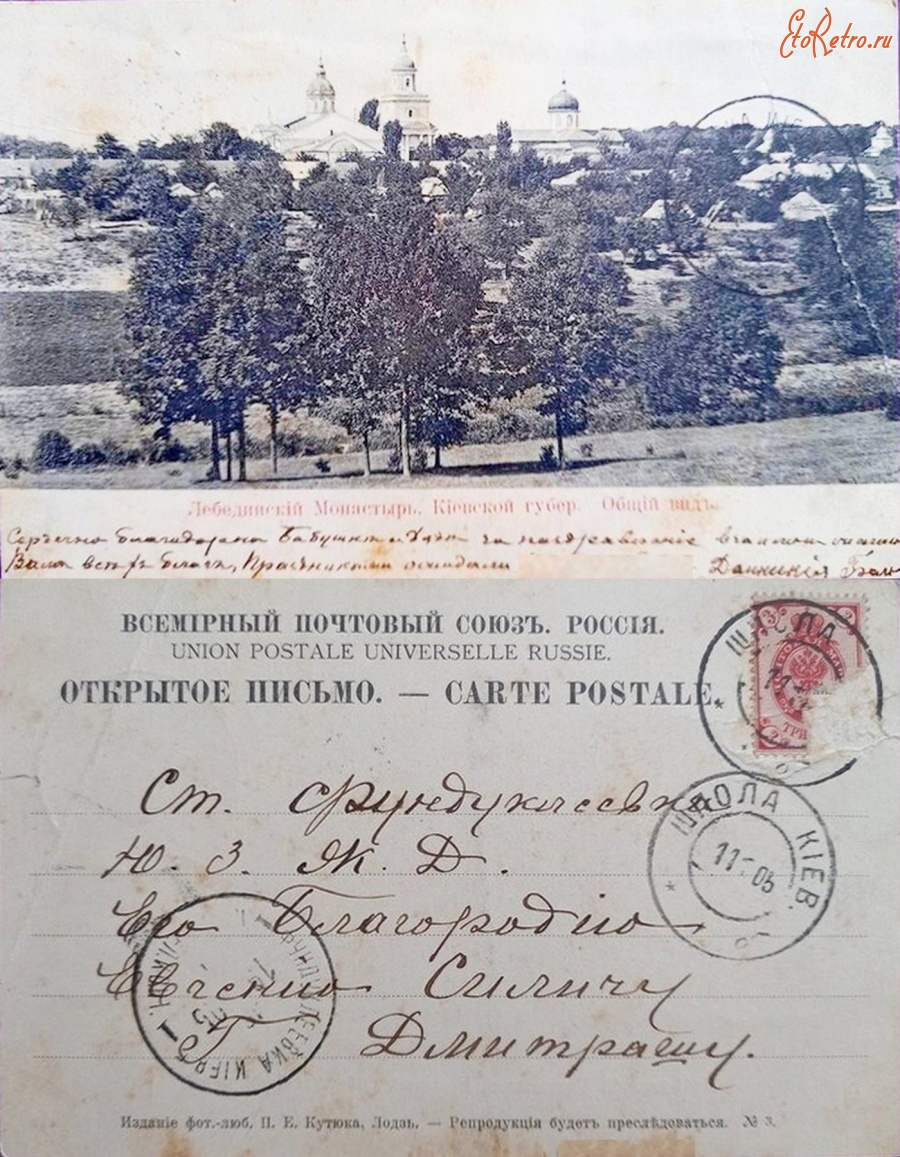 EtoRetro.ru
Лебединскій Монастырь, Кіевской губер. Общій видъ.
Сердечно благодарона Бабушкѣ и Дядѣ за поздравленіе
Вамъ всѣхъ благъ, Праздникомъ
ВСЕМІРНЫЙ ПОЧТОВЫЙ СОЮЗЪ. РОССІЯ.
UNION POSTALE UNIVERSELLE RUSSIE.
ОТКРЫТОЕ ПИСЬМО. — CARTE POSTALE.
ШПОЛА
ТРИ
Ст. Фундуклеевка
ШПОЛА КІЕВ.
Ю. З. Ж. Д.
11 05
Его Благородію
Евгенію Силичу
Г Дмитрашу.
Изданіе фот.-люб. П. Е. Кутюка, Лодзь. — Репродукція будетъ преслѣдоваться. № 3.